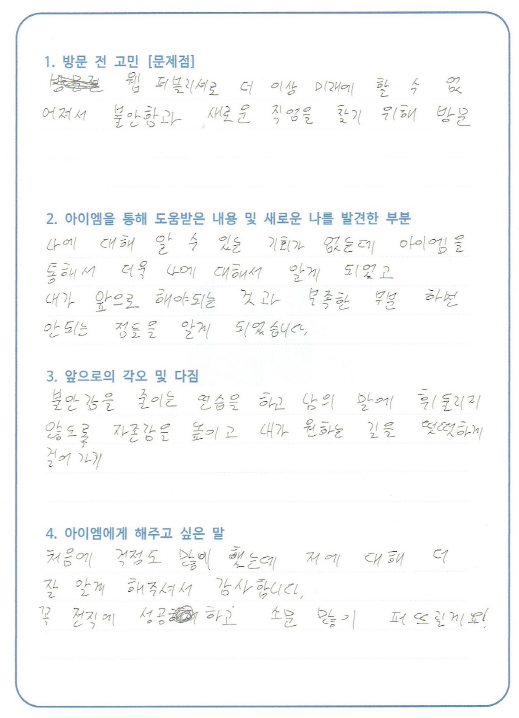 1. 방문 전 고민 [문제점]
웹 퍼블리셔로 더 이상 미래에 할 수 없
어져서 불안함과 새로운 직업을 찾기 위해 방문
2. 아이엠을 통해 도움받은 내용 및 새로운 나를 발견한 부분
나에 대해 알 수 있는 기회가 없는데 아이엠을
통해서 더욱 나에 대해서 알게 되었고
내가 앞으로 해야되는 것과 부족한 부분 하면
안되는 점들을 알게 되었습니다.
3. 앞으로의 각오 및 다짐
불안감을 줄이는 연습을 하고 남의 말에 휘둘리지
않도록 자존감을 높이고 내가 원하는 길을 떳떳하게
걸어가게
4. 아이엠에게 해주고 싶은 말
처음에 걱정도 많이 했는데 저에 대해 더
잘 알게 해주셔서 감사합니다.
꼭 전직에 성공하고 소문 많이 퍼뜨릴게요!